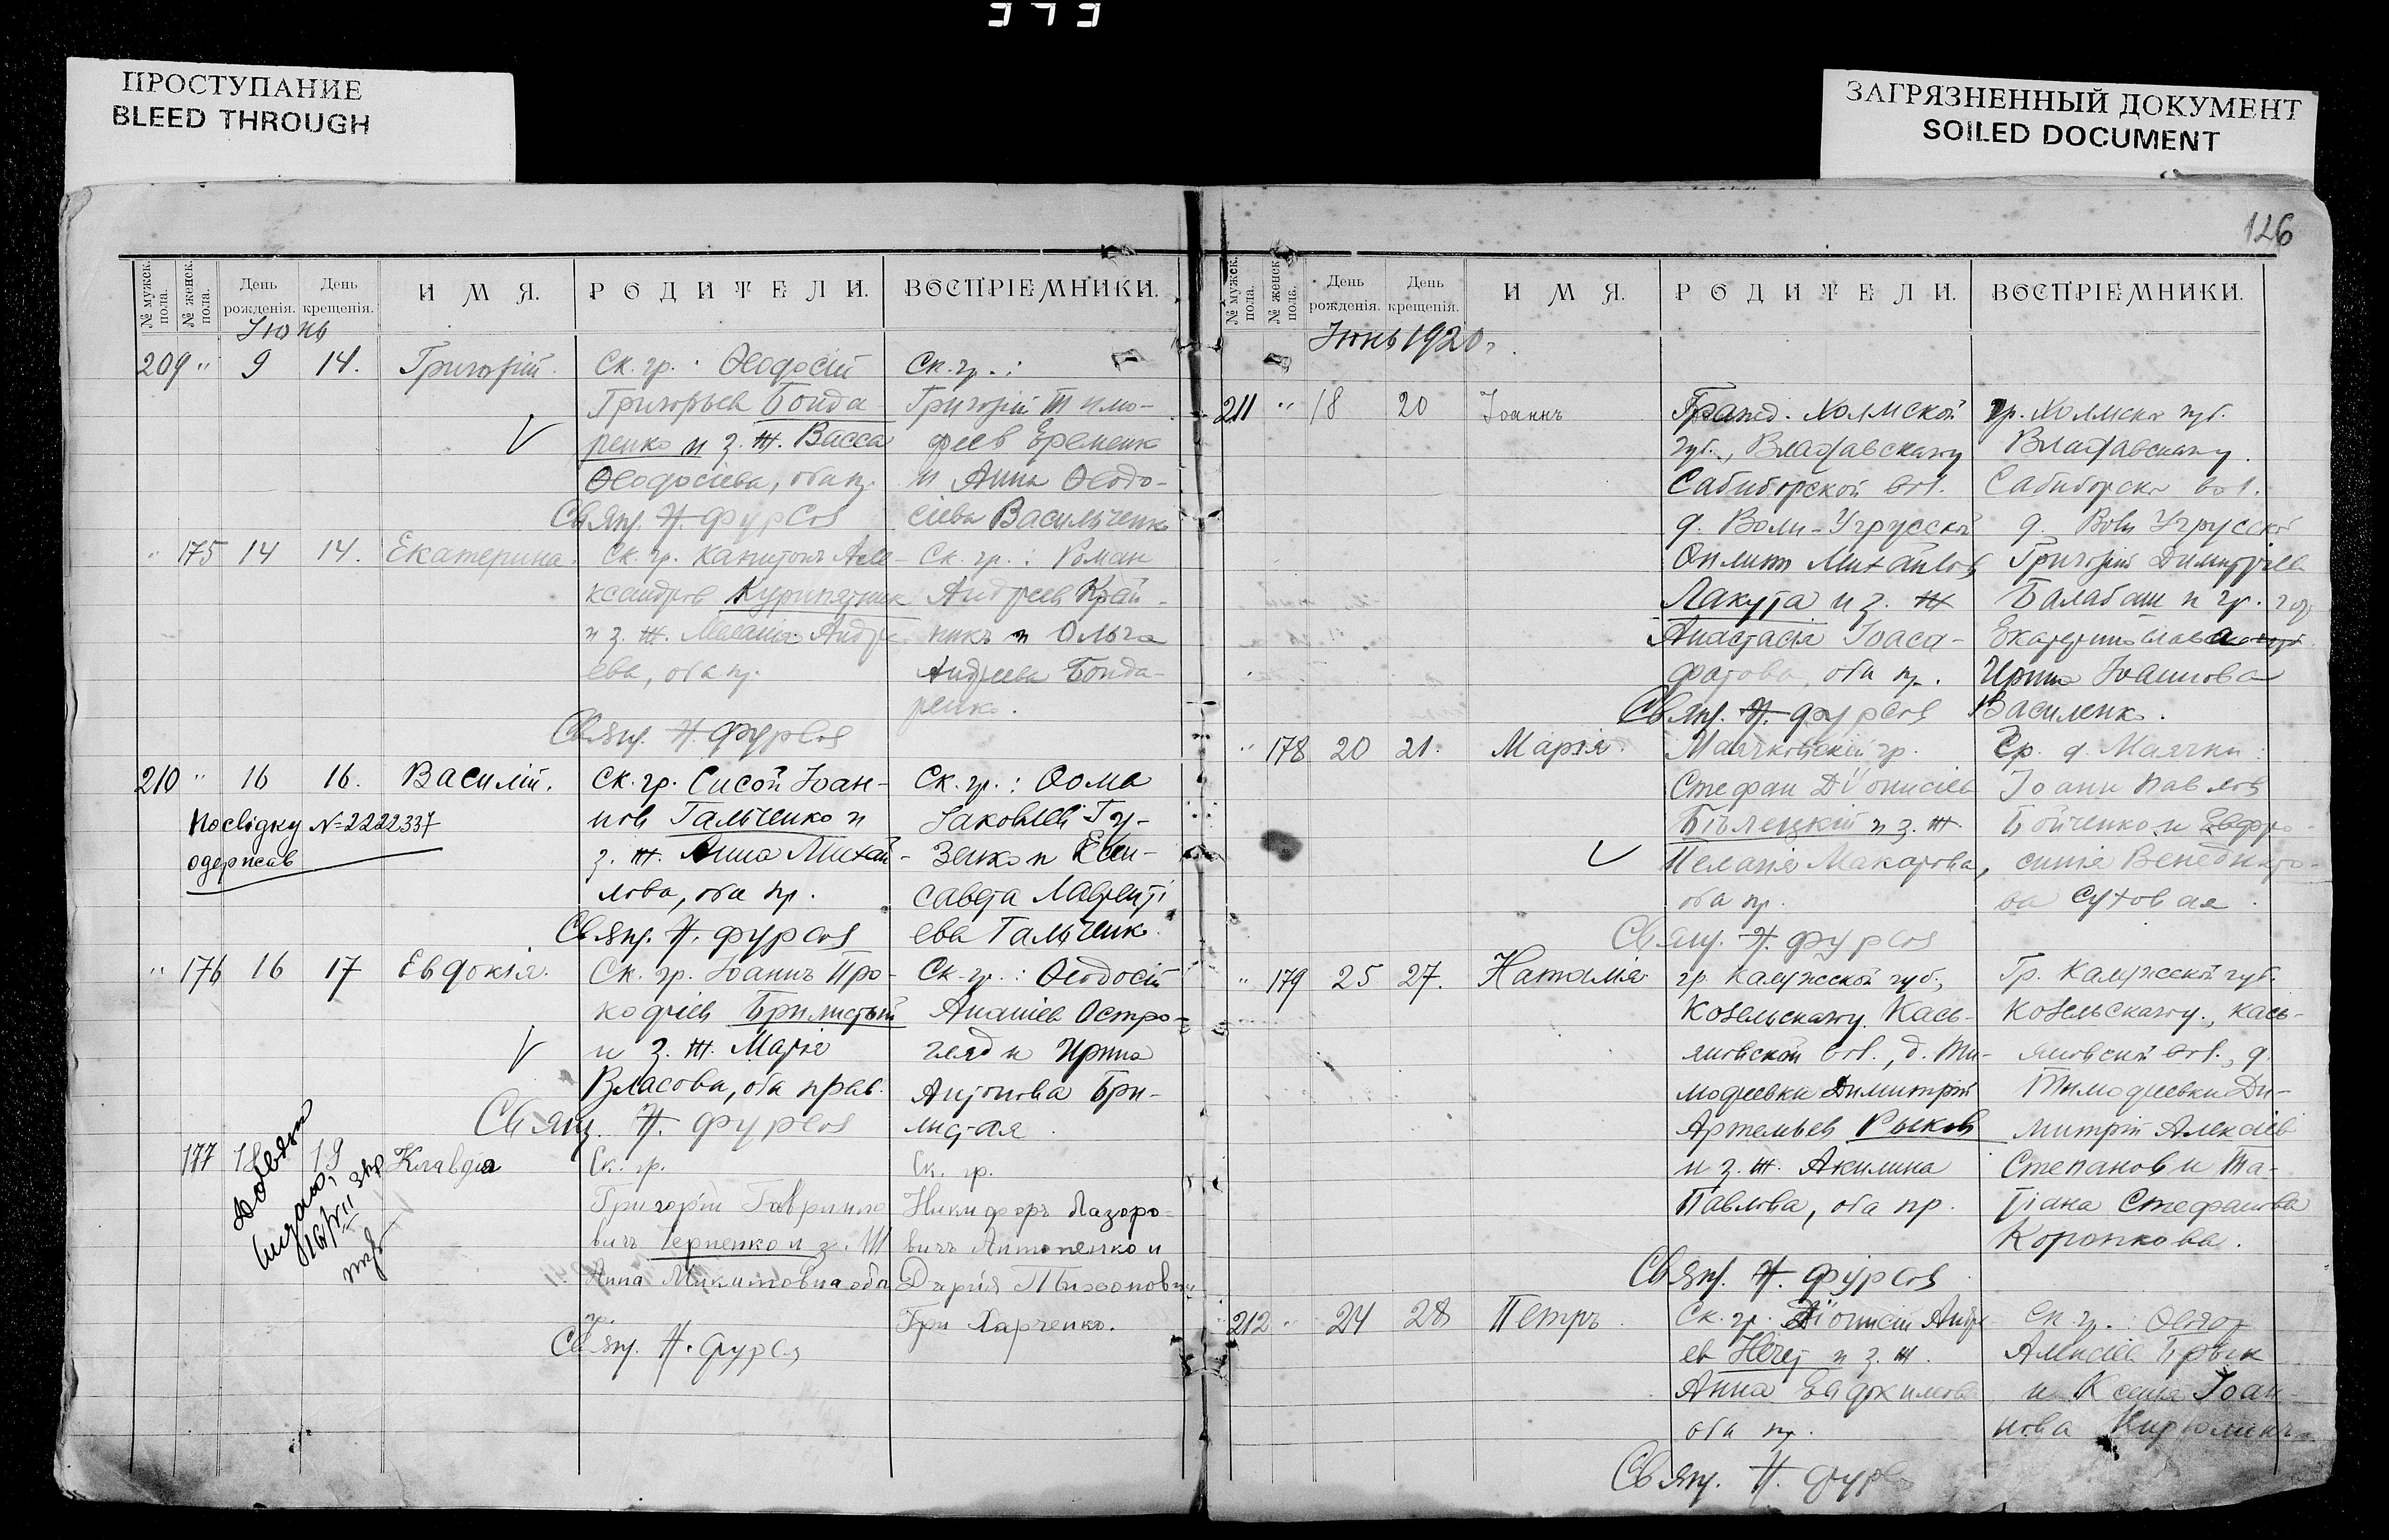 ПРОСТУПАНИЕ
BLEED THROUGH
ЗАГРЯЗНЕННЫЙ ДОКУМЕНТ
SOILED DOCUMENT
126
№ мужск. пола.
№ женск. пола.
День рожденія.
День крещенія.
ИМЯ.
РОДИТЕЛИ.
ВОСПРІЕМНИКИ.
Іюнь
209 " 9 14. Григорій.
Ск. гр. Ѳеодосій
Григорьев Бонда
ренко и з. ж. Васса
Ѳеодосіева, оба пр.
Ск. гр.:
Григорій Тимо-
феев Еременко
и Анна Ѳеодо-
сіева Васильченко
Свящ. Н. Фурсов
" 175 14 14. Екатерина.
Ск. гр. Капитонъ Але-
ксандров Курипятник
и з. ж. Меланія Андре
ева, оба пр.
Ск. гр.: Роман
Андреев Край-
никъ и Ольга
Андреева Бонда-
ренко.
Свящ. Н. Фурсов
210 " 16 16. Василій.
Посвідку №2222337
одержав
Ск. гр. Сисой Іоан-
нов Гальченко и
з. ж. Анна Михай-
лова, оба пр.
Ск. гр.: Ѳома
Іаковлев Гу-
зенко и Ели-
савета Лавренті
ева Гальченко.
Свящ. Н. Фурсов
" 176 16 17 Евдокія.
Ск. гр. Іоаннъ Про-
кофіев Брилистый
и з. ж. Марія
Власова, оба прав.
Ск. гр.: Ѳеодосій
Ананіев Остро-
гляд и Ирина
Антонова Бри-
листая.
Свящ. Н. Фурсов
177 18 19 Клавдія
Ск. гр.
Григорій Гаврило
вичъ Терпенко и з. Ж
Анна Микитовна оба
пр.
Ск. гр.
Никифоръ Лазоро-
вичъ Антоненко и
Дарія Тихоновна
Харченко.
Свящ. Н. Фурсов
№ мужск. пола.
№ женск. пола.
День рожденія.
День крещенія.
ИМЯ.
РОДИТЕЛИ.
ВОСПРІЕМНИКИ.
Іюнь 1920 г.
211 " 18 20 Іоаннъ
Гражд. Холмской
губ., Влодавскаго у
Сабиборской вол.
д. Воли-Угрусской
Михайлов
Лакута и з. ж
Анастасія Іоаса-
фатова, оба пр.
гр. Холмско губ.
Влодавскаго у.
Сабиборско вол.
д. Воли Угрусской
Григорій Димитріев
Балабаш и гр. гор
Екатеринослава
Ирина Іоаннова
Василенко.
Свящ. Н. Фурсов
" 178 20 21. Марія.
Маячковскій гр.
Стефан Діонисіев
Бѣлецкій и з. ж.
Пелагія Макарова,
оба пр.
Гр. д. Маячки:
Іоанн Павлов
Бойченко и Евфро-
синія Венедикто-
ва Сутовая.
Свящ. Н. Фурсов
" 179 25 27. Наталія
гр. Калужской губ.,
Козельскаго у. Кась-
яновской вол., д. Ти-
мофеевки Димитрій
Артемьев Рыков
и з. ж. Акилина
Павлова, оба пр.
Гр. Калужской губ.
Козельскаго у., Кась-
яновской вол., д.
Тимофеевки Ди-
митрій Алексіев
Степанов и Та-
тіана Стефанова
Коронкова.
Свящ. Н. Фурсов
212 " 24 28 Петръ
Ск. гр. Діонисій Андре
ев Нечет и з. ж.
Анна Евдокимова
оба пр.
Ск. гр.: Ѳеодор
Алексіев Брык
и Ксенія Іоан-
нова
Свящ. Н. Фурсов